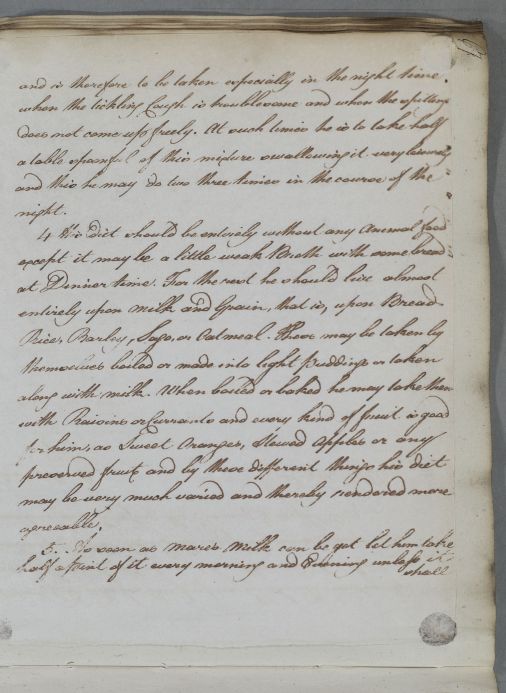 and is therefore to be taken especially in the night time
when the tickling Cough is troublesome and when the spitting
does not come up freely. At such times he is to take half
a table spoonful of this mixture swallowing it very leisurely
and this he may do two three times in the course of the
night.
4 His diet should be entirely without any Animal food
except it may be a little weak Broth with some bread
at Dinner time. For the rest he should live almost
entirely upon milk and Grain, that is, upon Bread
Rice, Barley, Sago, or Oatmeal. These may be taken by
themselves boiled or made into light puddings or taken
along with milk. When boiled or baked he may take them
with Raisins or Currants and every kind of fruit is good
for him, as Sweet Oranges, Stewed Apples or any
preserved fruit and by these different things his diet
may be very much varied and thereby rendered more
agreeable.
5.. As soon as mares milk can be got let him take
half a pint of it every morning and Evening unless it
shall